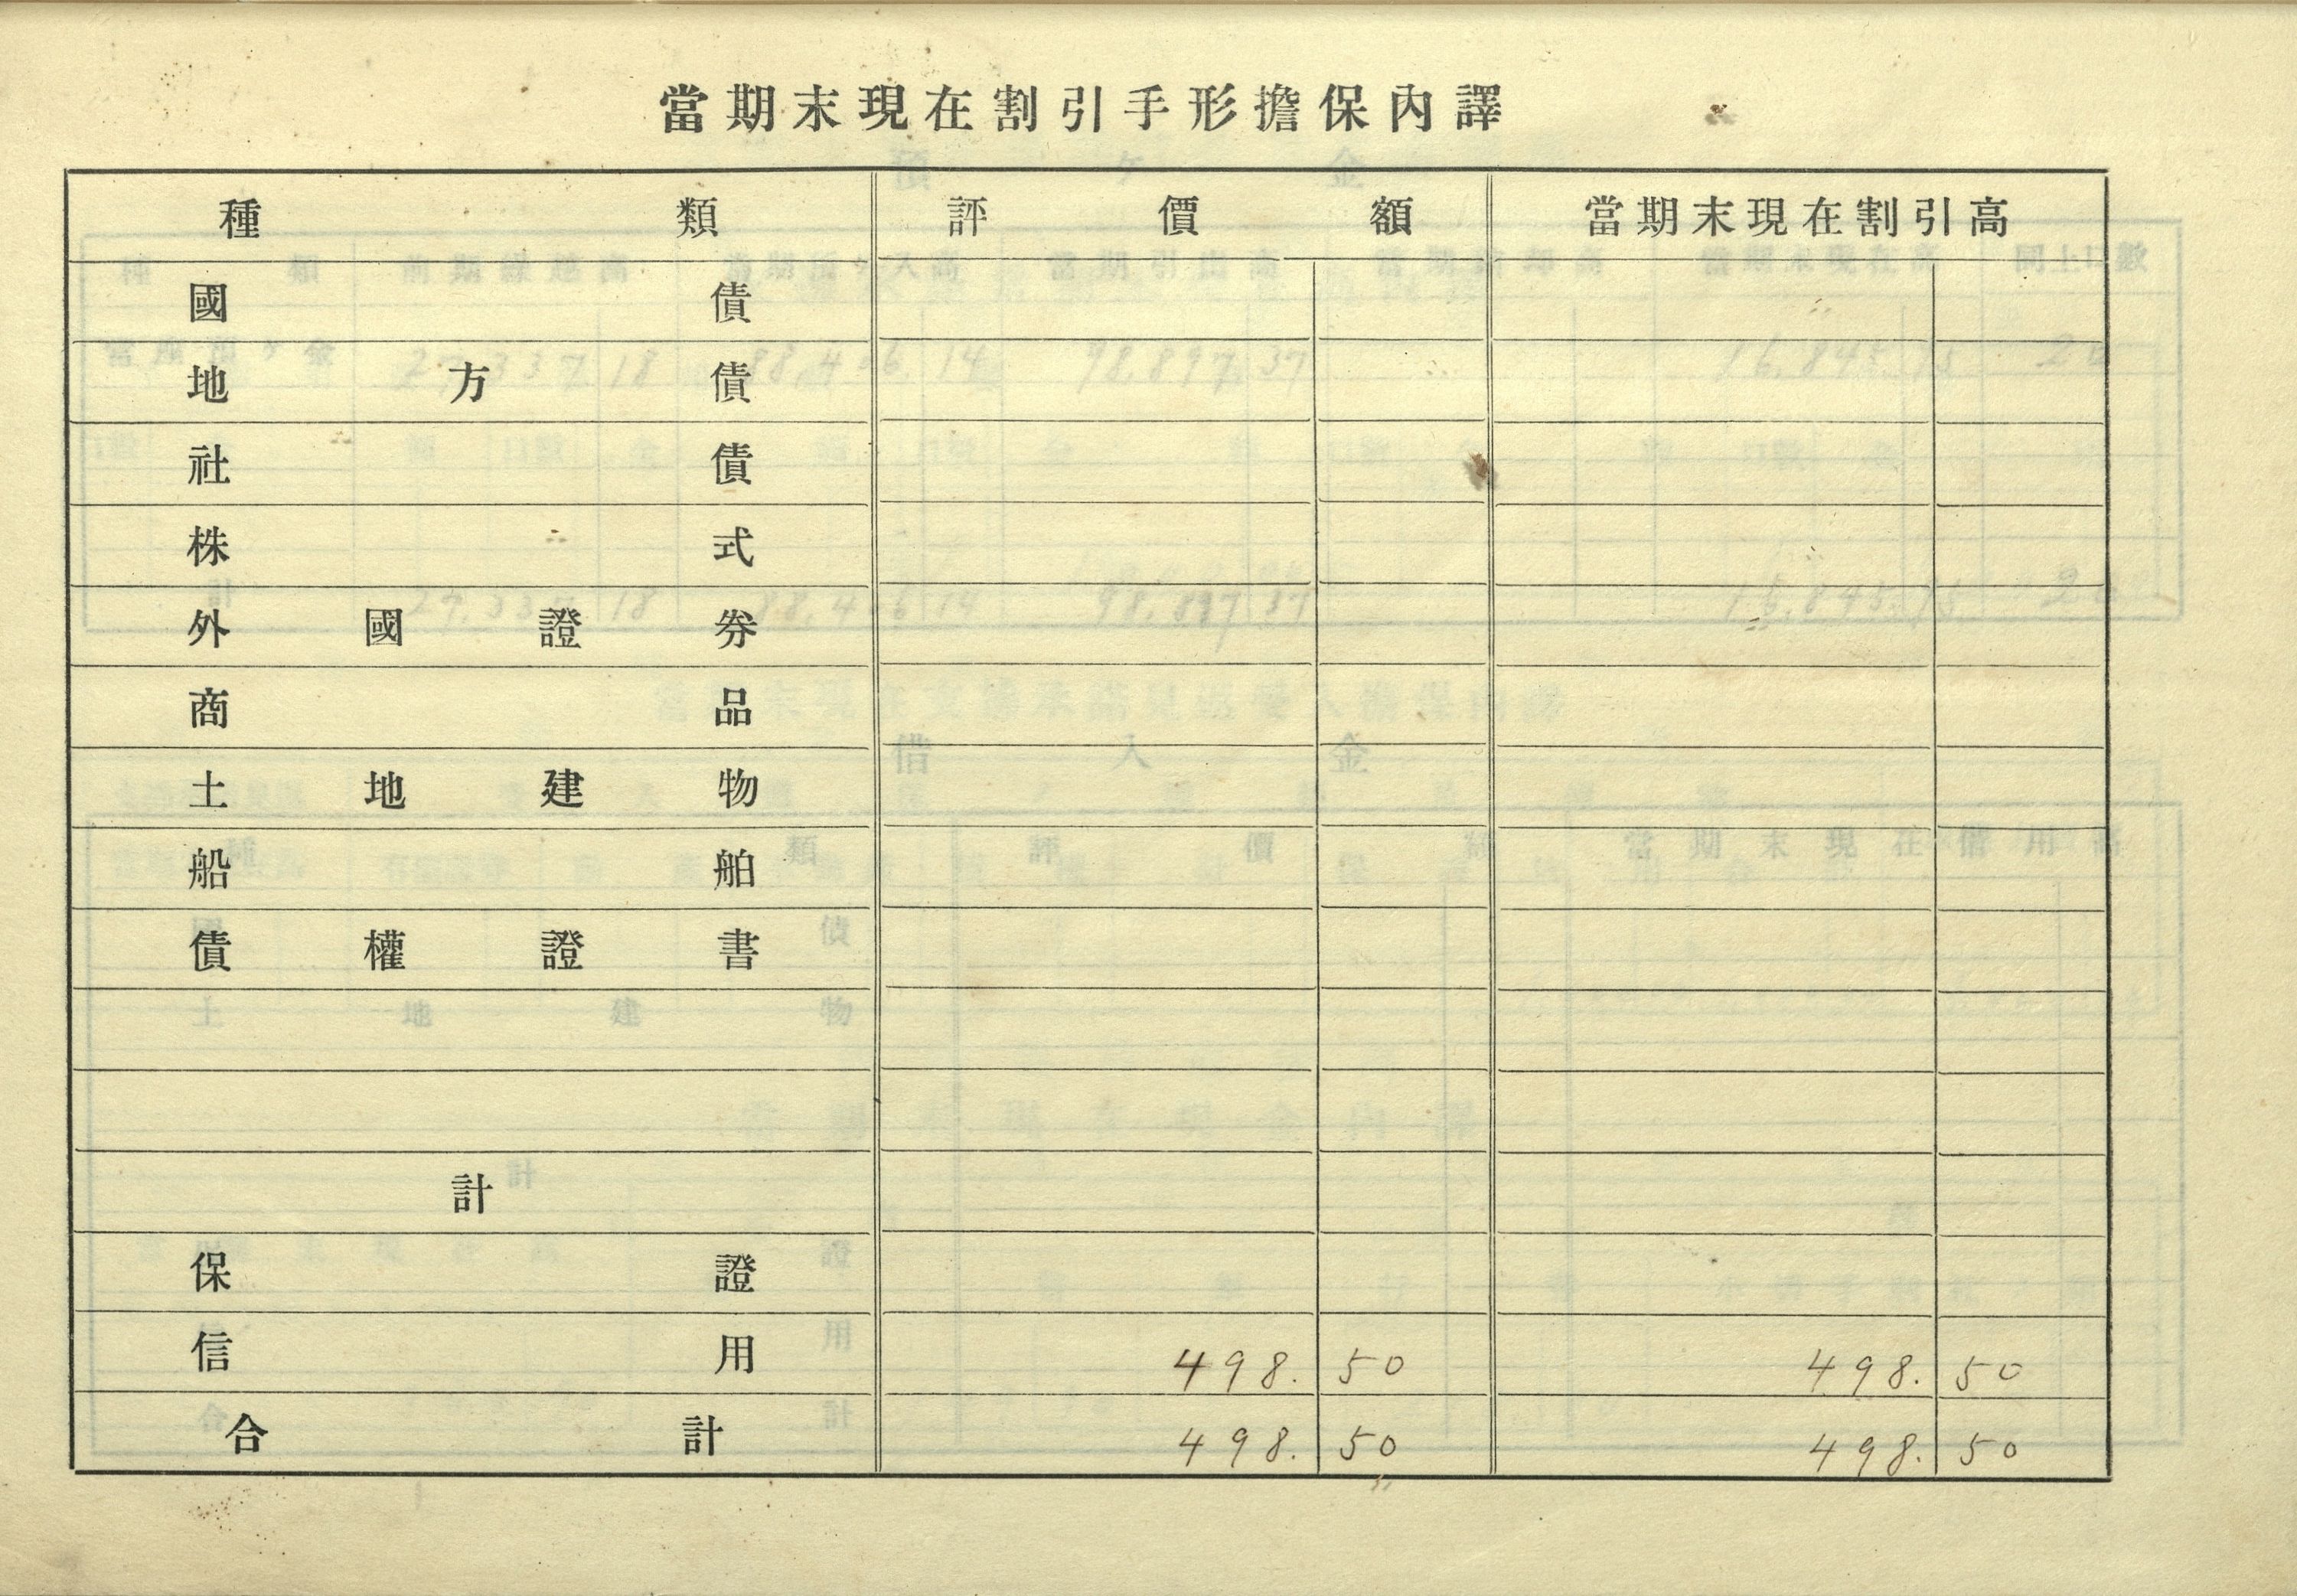 當期末現在割引手形擔保內譯
種類 評價額 當期末現在割引高
國債
地方債
社債
株式
外國證券
商品
土地建物
船舶
債權證書
計
保證
信用 498. 50 498. 50
合計 498. 50 498. 50